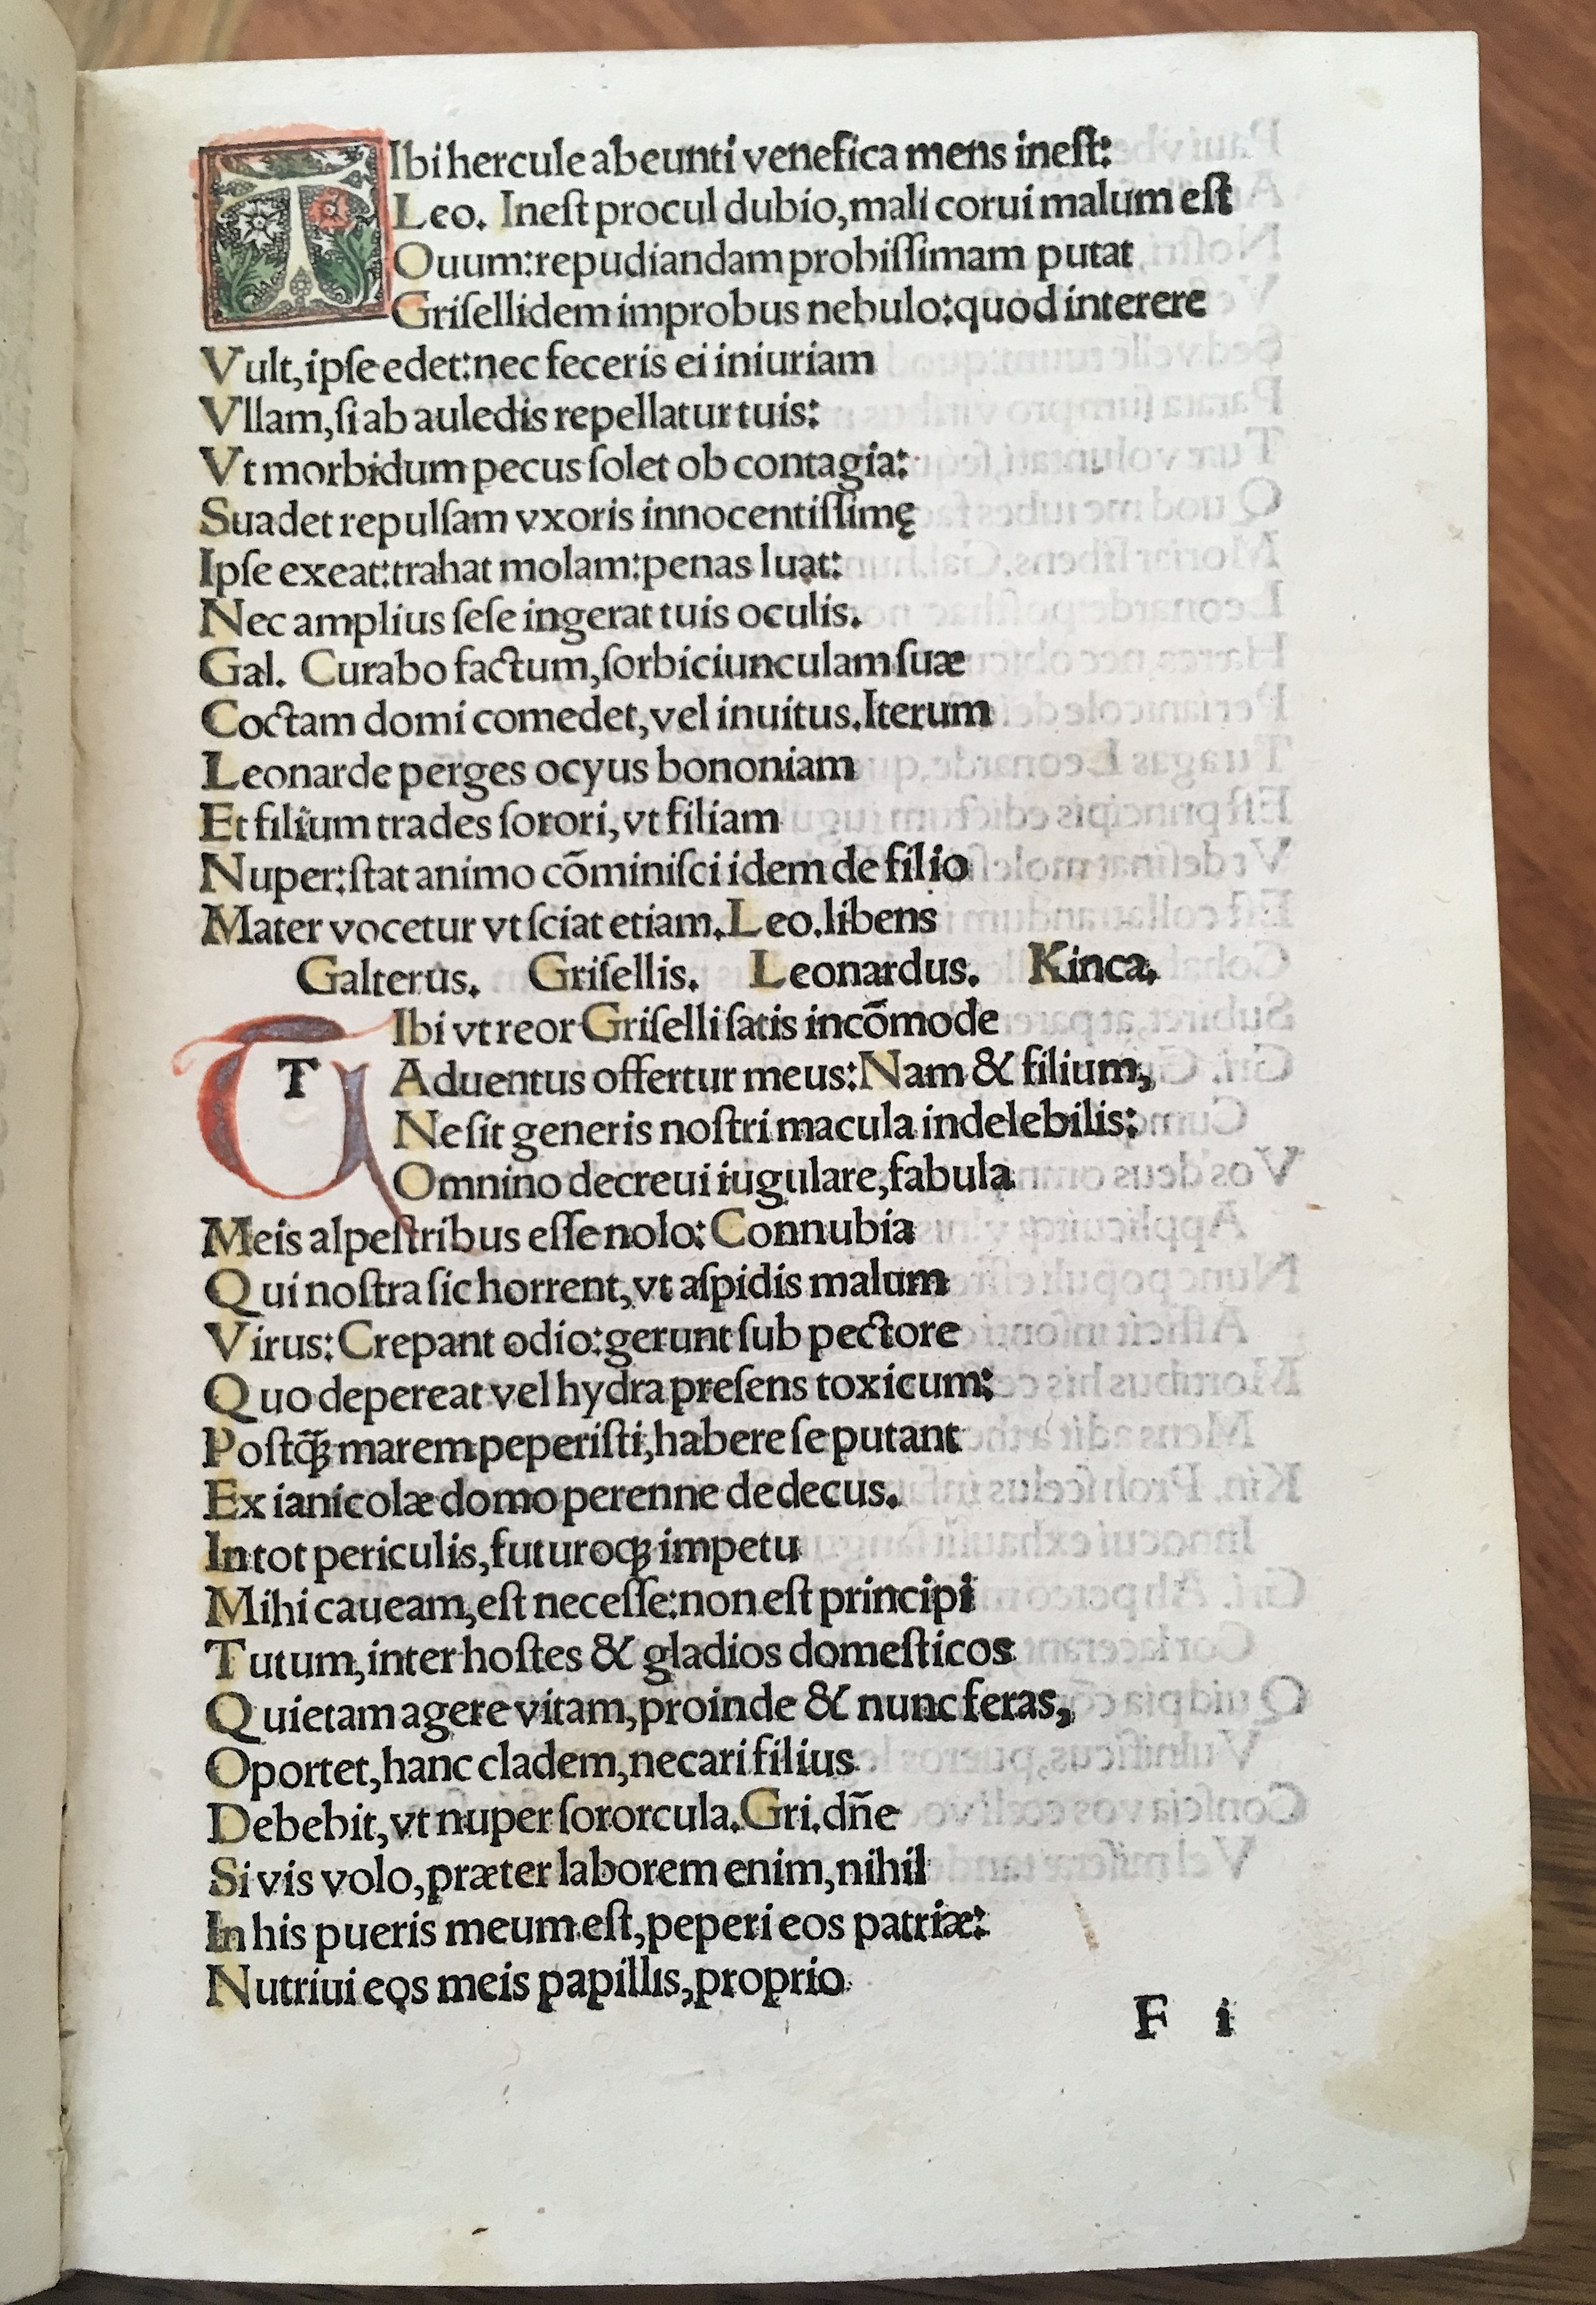 TIbi hercule abeunti venefica mens ineſt:
Leo. Ineſt procul dubio, mali corui malum eſt
Ouum: repudiandam probiſſimam putat
Griſellidem improbus nebulo: quod interere
Vult, ipſe edet: nec feceris ei iniuriam
Vllam, ſi ab auledis repellatur tuis:
Vt morbidum pecus ſolet ob contagia:
Suadet repulſam vxoris innocentiſſimę
Ipſe exeat: trahat molam: penas luat:
Nec amplius ſeſe ingerat tuis oculis.
Gal. Curabo factum, ſorbiciunculam ſuæ
Coctam domi comedet, vel inuitus. Iterum
Leonarde perges ocyus bononiam
Et filium trades ſorori, vt filiam
Nuper: ſtat animo cōminiſci idem de filio
Mater vocetur vt ſciat etiam. Leo. libens
Galterus. Griſellis. Leonardus. Kinca.
TIbi vt reor Griſelli ſatis incōmode
Aduentus offertur meus: Nam & filium,
Ne ſit generis noſtri macula indelebilis:
Omnino decreui iugulare, fabula
Meis alpeſtribus eſſe nolo: Connubia
Qui noſtra ſic horrent, vt aſpidis malum
Virus: Crepant odio: gerunt ſub pectore
Quo depereat vel hydra preſens toxicum:
Poſtq̃ꝫ marem peperiſti, habere ſe putant
Ex ianicolæ domo perenne dedecus.
In tot periculis, futuroqꝫ impetu
Mihi caueam, eſt neceſſe: non eſt principi
Tutum, inter hoſtes & gladios domeſticos
Quietam agere vitam, proinde & nunc feras,
Oportet, hanc cladem, necari filius
Debebit, vt nuper ſororcula. Gri. dñe
Si vis volo, præter laborem enim, nihil
In his pueris meum eſt, peperi eos patriæ:
Nutriui eos meis papillis, proprio
F i